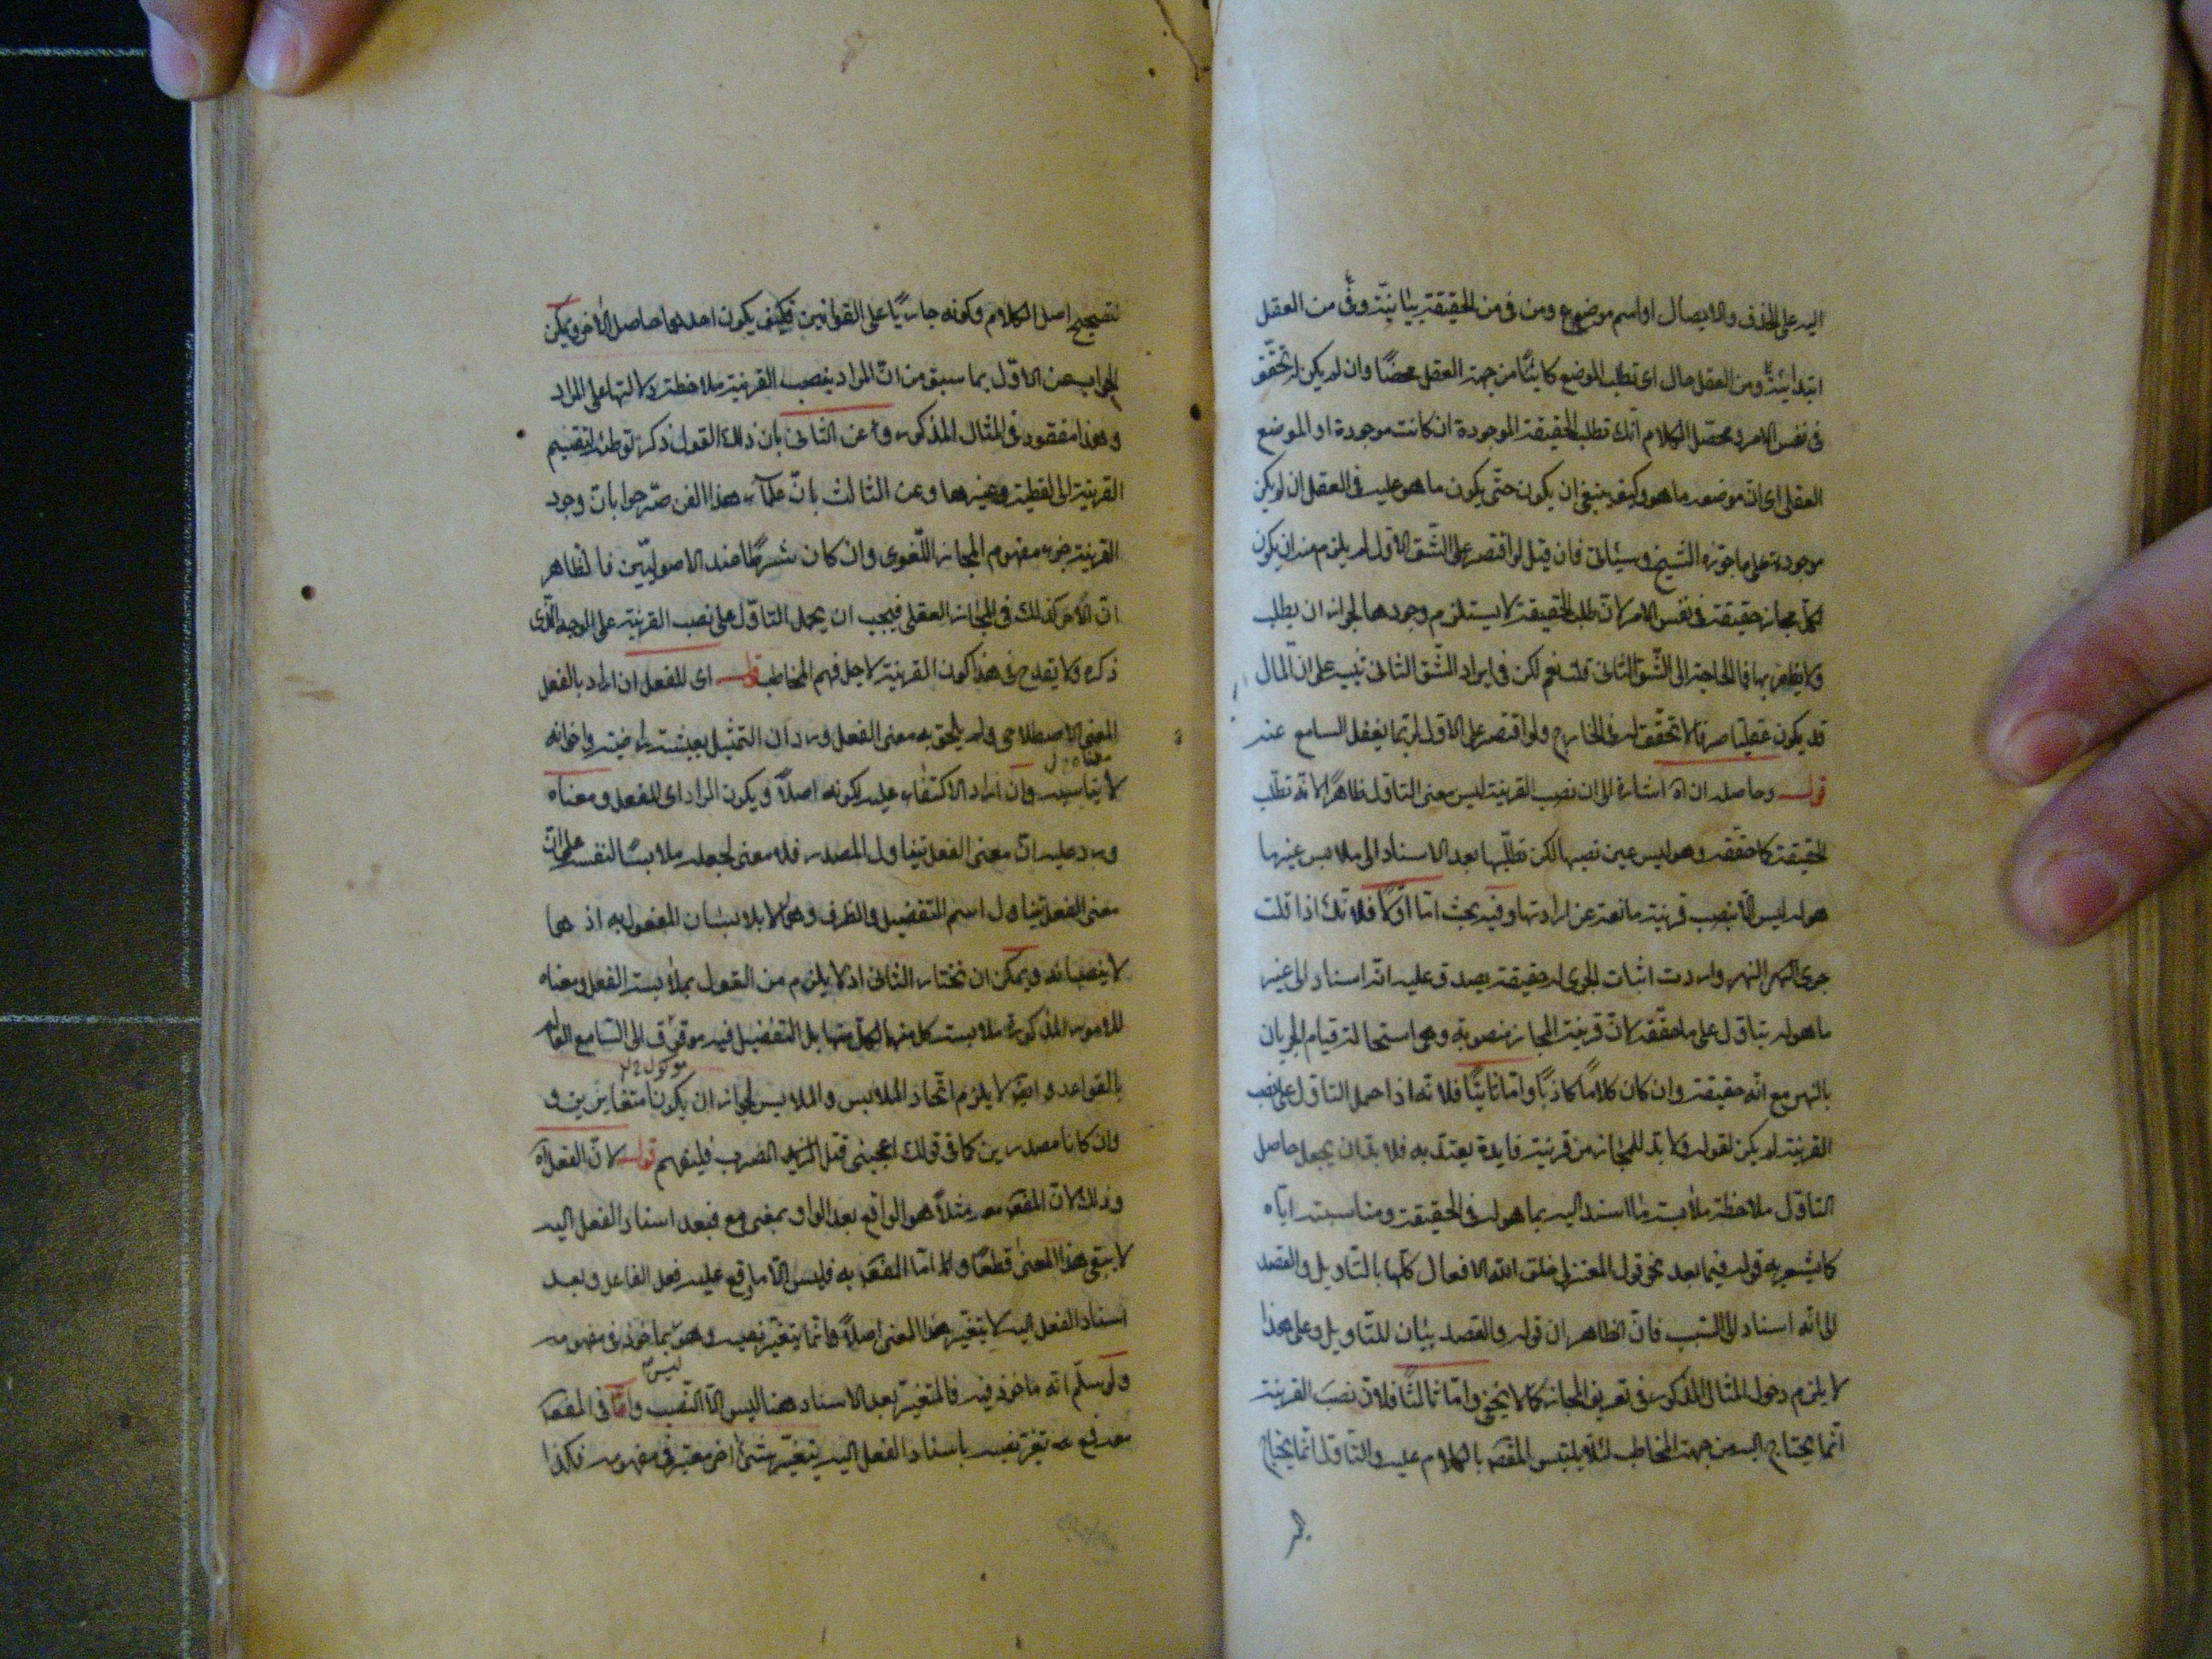 اليه على الحذف والايصال او اسم موضوع ومن في من الحقيقة بيانية وفي من العقل
ابتدائية ومن العقل حال اى تطلب الموضع كائنا من جهة العقل محضا وان لم يكن له تحقق
في نفس الامر ومحصل الكلام انك تطلب الحقيقة الموجودة ان كانت موجودة او الموضع
العقلى اى ان موضعه ما هو وكيف ينبغي ان يكون حتى يكون ما هو عليه فى العقل ان لم يكن
موجودة على ما جوزه الشيخ وسيئاتى فان قيل لو اقتصر على الشق الاول لم يلزم منه ان يكون
لكل مجاز حقيقة فى نفس الامر لان طلب الحقيقة لا يستلزم وجودها لجواز ان يطلب
ولا يظفر بها فما الحاجة الى الشق الثانى قلت نعم لكن فى ايراد الشق الثانى تنبيه على ان المال
قد يكون عقليا صرفا لا تحقق له فى الخارج ولو اقتصر على الاول لربما يغفل السامع عنه
قوله وحاصله ان اه اشارة الى ان نصب القرينة ليس معنى التاول ظاهرا لانه تطلب
الحقيقة كما حققه وهو ليس عين نصبها لكن تطلبها بعد الاسناد الى ملابس غيرها
هو له ليس الا بنصب قرينة مانعة عن ارادتها وفيه بحث اما اولا فلانك اذا قلت
جرى النهر النهر واردت اثبات الجرى له حقيقة يصدق عليه انه اسناد الى غير
ما هو له بتاول على ما حققه لان قرينة المجاز منصوبة وهى استحالة قيام الجريان
بالنهر مع انه حقيقة وان كان كلاما كاذبا واما ثانيا فلانه اذا حمل التاول على نصب
القرينة لم يكن لقوله ولا بد للمجاز من قرينة فايدة يعتد به فلا بد ان يجعل حاصل
التاول ملاحظة ملابسة ما اسند اليه بما هو له فى الحقيقة ومناسبته اياه
كما يشعر به قوله فيما بعد نحو قول المعتزلى خلق الله الافعال كلها بالتاويل والقصد
الى انه اسناد الى السبب فان الظاهر ان قوله والقصد بيان للتاويل وعلى هذا
لا يلزم دخول المثال المذكور فى تعريف المجاز كما لا يخفى واما ثالثا فلان نصب القرينة
انما يحتاج اليه من جهة المخاطب لئلا يلتبس المقصد بالكلام عليه والتاول انما يحتاج
لتصحيح اصل الكلام وكونه جاريا على القوانين فكيف يكون احدهما حاصل الآخر ويمكن
الجواب عن الاول بما سبق من ان المراد بنصب القرينة ملاحظة دلالتها على المراد
وهذا مفقود فى المثال المذكور وعن الثانى بان ذلك القول ذكره توطئة لتقسيم
القرينة الى لفظية وغيرها وعن الثالث بان علماء هذا الفن صرحوا بان وجود
القرينة جزء مفهوم المجاز اللغوى وان كان شرطا عند الاصوليين فالظاهر
ان الامر كذلك فى المجاز العقلى فيجب ان يحمل التاول على نصب القرينة على الوجه الذى
ذكره ولا يقدح فى هذا كون القرينة لاجل فهم المخاطب قوله اى للفعل ان اراد بالفعل
المعنى الاصطلاحى ولم يلحق به معنى الفعل ورد ان التمثيل بعيشة راضية واخوانه
لا يناسبه وان اراد الاكتفاء عليه لكونه اصلا ويكون المراد اى للفعل ومعناه
ورد عليه ان معنى الفعل يتناول المصدر فلا معنى لجعله ملابسا لنفسه على ان
معنى الفعل يتناول اسم التفضيل والظرف وهما لا يلابسان المفعول به اذ هما
لا ينصبانه ويمكن ان نختار الثانى اذ لا يلزم من القول بملابسة الفعل ومعناه
للامور المذكورة ملابسة كل منهما لكل منها بل التفضيل فيه موقوف الى السامع العالم
بالقواعد وايضا لا يلزم اتحاد الملابس والملابس لجواز ان يكونا متغايرين و
وان كانا مصدرين كما فى قولك اعجبنى قتل الضرب فليفهم قوله لان الفعل اه
وذلك لان المفعول معه مثلا هو الواقع بعد الواو بمعنى مع فبعد اسناد الفعل اليه
لا يبقى هذا المعنى قطعا واما المفعول به فليس الا ما وقع عليه فعل الفاعل وبعد
اسناد الفعل اليه لا يتغير هذا المعنى اصلا وانما يتغير نصبه وهو بماخوذ فى مفهومه
ليس
ولو سلم انه ماخوذ فيه فالمتغير بعد الاسناد ههنا ليس الا النصب واما فى المفعول
معه فمع تغير نصبه باسناد الفعل اليه يتغير شئ آخر معتبر فى مفهومه فكذا